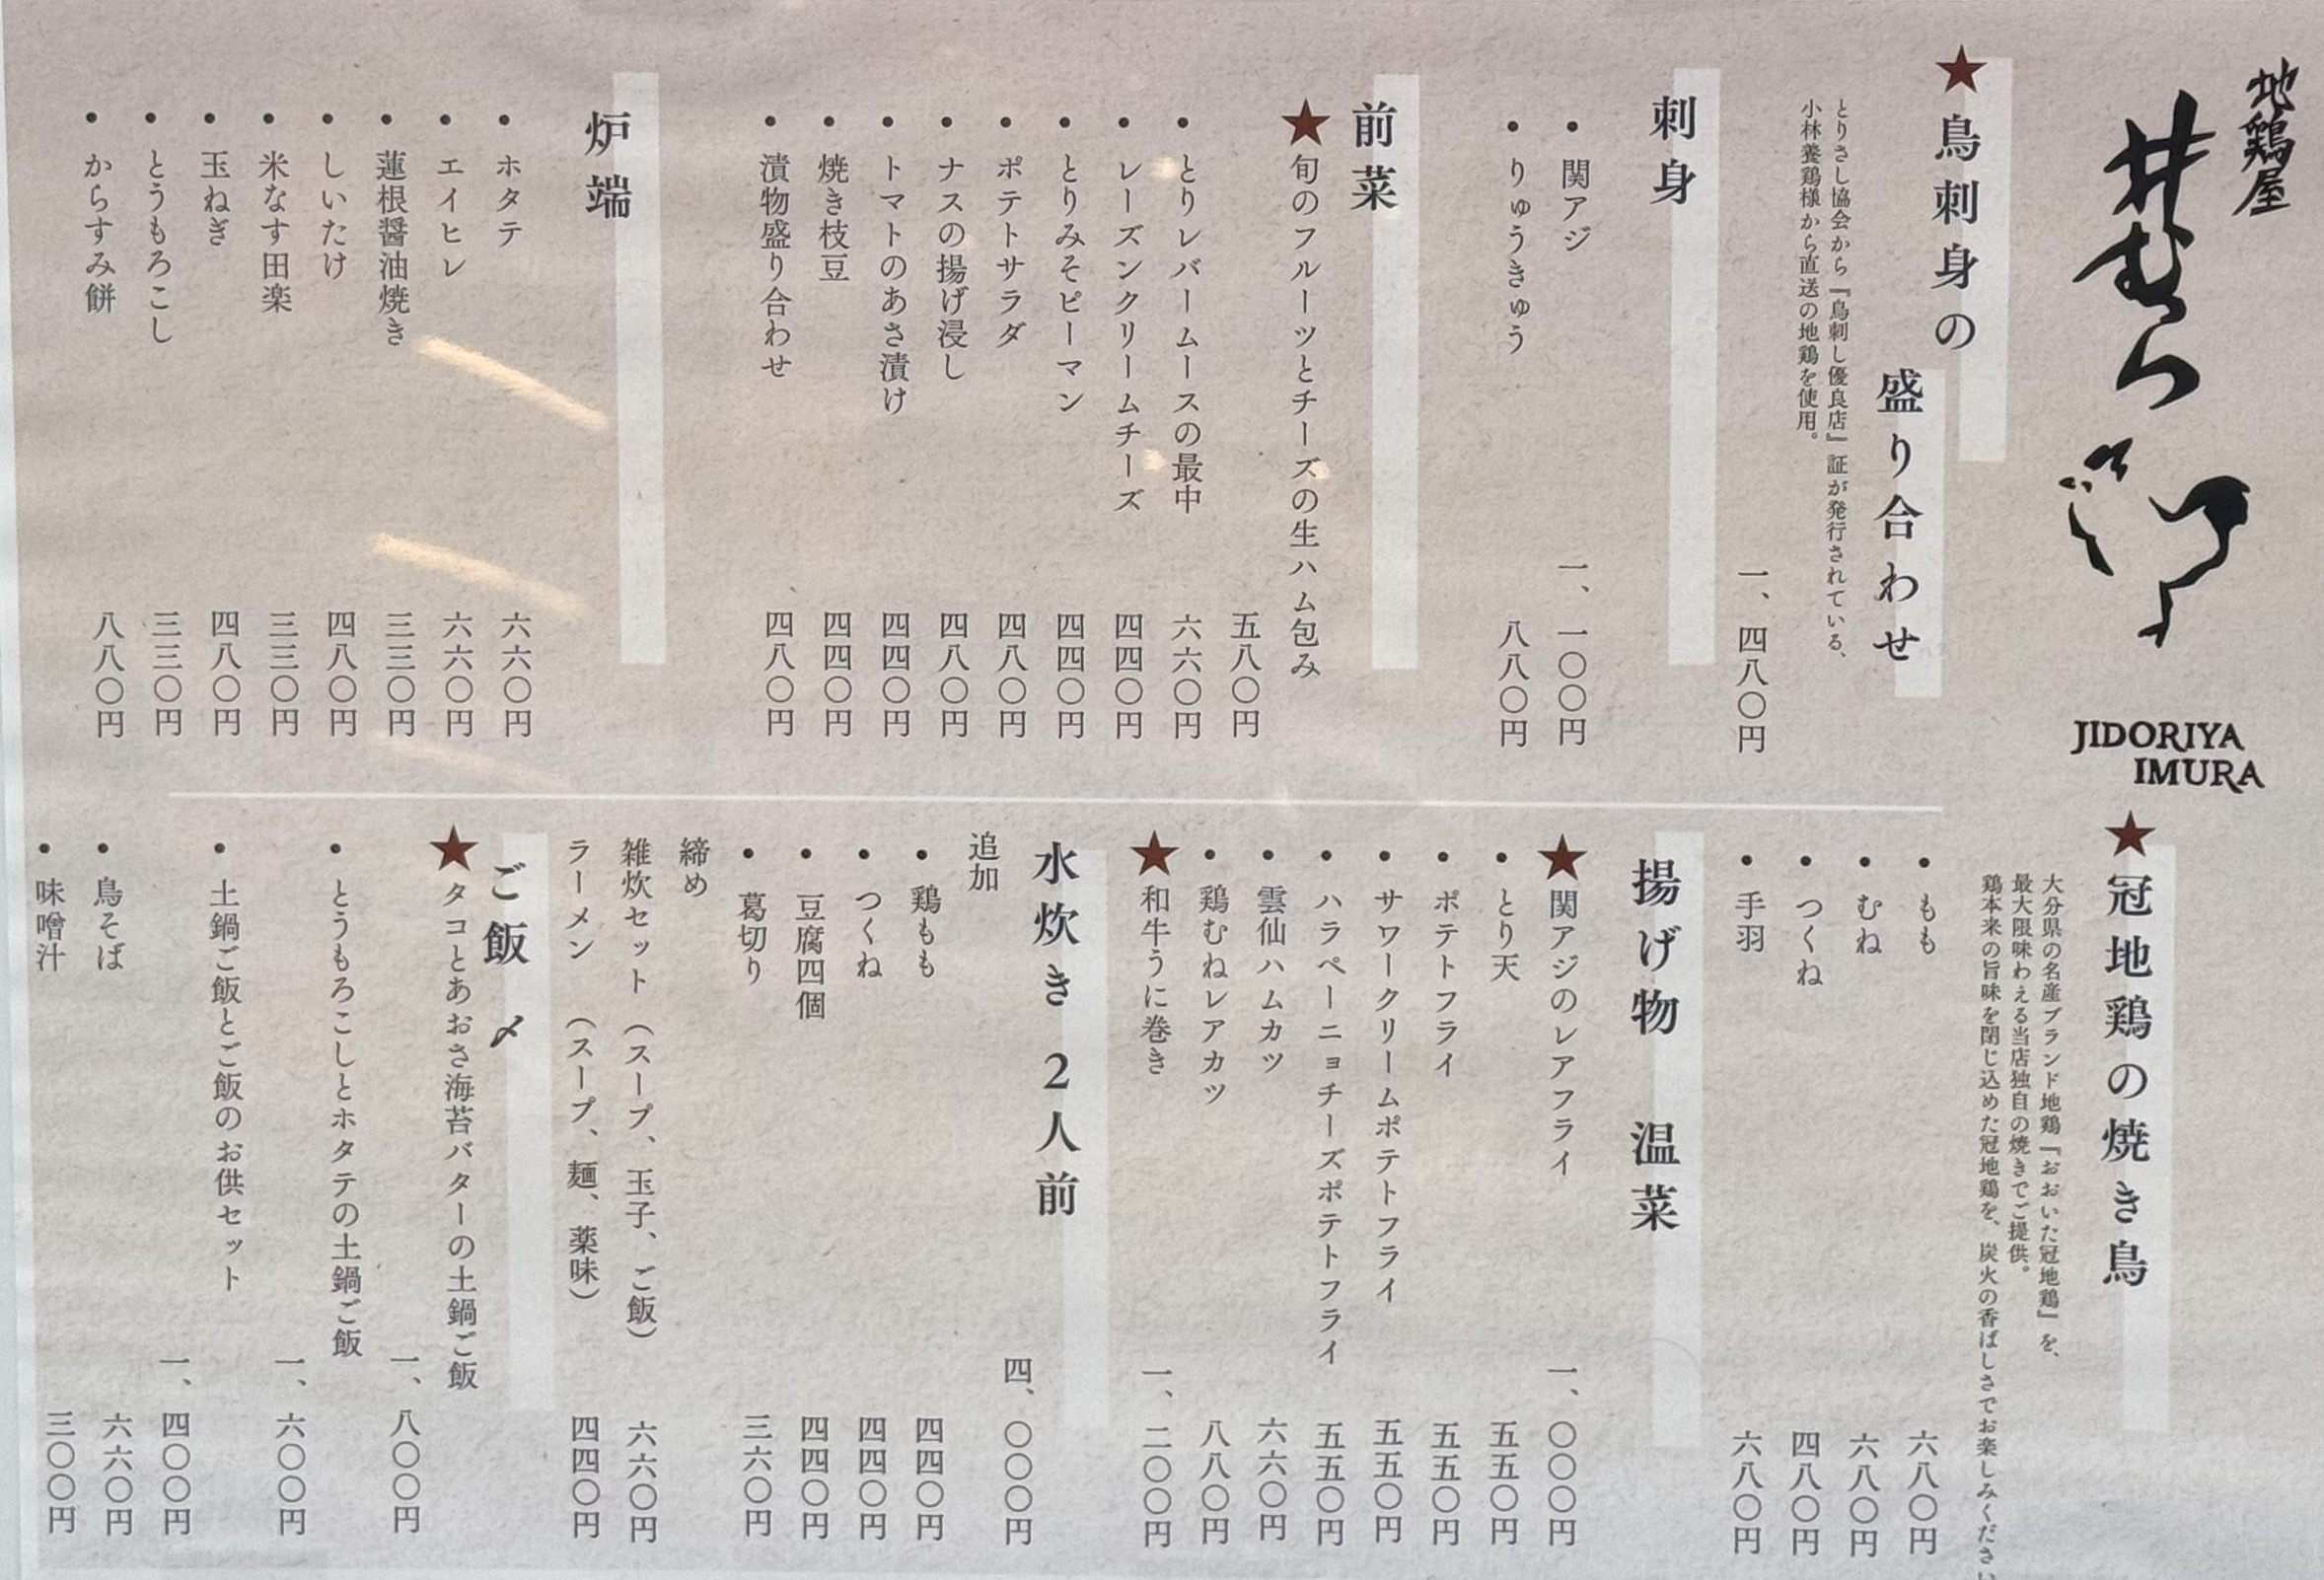 地鶏屋
井むら
JIDORIYA
IMURA
★鳥刺身の
盛り合わせ
とりさし協会から『鳥刺し優良店』証が発行されている、
小林養鶏様から直送の地鶏を使用。
一、四八〇円
刺身
・関アジ 一、一〇〇円
・りゅうきゅう 八八〇円
前菜
★旬のフルーツとチーズの生ハム包み 五八〇円
・とりレバームースの最中 六六〇円
・レーズンクリームチーズ 四四〇円
・とりみそピーマン 四四〇円
・ポテトサラダ 四八〇円
・ナスの揚げ浸し 四八〇円
・トマトのあさ漬け 四四〇円
・焼き枝豆 四四〇円
・漬物盛り合わせ 四八〇円
炉端
・ホタテ 六六〇円
・エイヒレ 六六〇円
・蓮根醤油焼き 三三〇円
・しいたけ 四八〇円
・米なす田楽 三三〇円
・玉ねぎ 四八〇円
・とうもろこし 三三〇円
・からすみ餅 八八〇円
★冠地鶏の焼き鳥
大分県の名産ブランド地鶏『おおいた冠地鶏』を、
最大限味わえる当店独自の焼きでご提供。
鶏本来の旨味を閉じ込めた冠地鶏を、炭火の香ばしさでお楽しみください
・もも 六八〇円
・むね 六八〇円
・つくね 四八〇円
・手羽 六八〇円
揚げ物 温菜
★関アジのレアフライ 一、〇〇〇円
・とり天 五五〇円
・ポテトフライ 五五〇円
・サワークリームポテトフライ 五五〇円
・ハラペーニョチーズポテトフライ 五五〇円
・雲仙ハムカツ 六六〇円
・鶏むねレアカツ 八八〇円
★和牛うに巻き 一、二〇〇円
水炊き 2人前 四、〇〇〇円
追加
・鶏もも 四四〇円
・つくね 四四〇円
・豆腐四個 四四〇円
・葛切り 三六〇円
締め
雑炊セット(スープ、玉子、ご飯) 六六〇円
ラーメン(スープ、麺、薬味) 四四〇円
ご飯 〆
★タコとあおさ海苔バターの土鍋ご飯 一、八〇〇円
・とうもろこしとホタテの土鍋ご飯 一、六〇〇円
・土鍋ご飯とご飯のお供セット 一、四〇〇円
・鳥そば 六六〇円
・味噌汁 三〇〇円